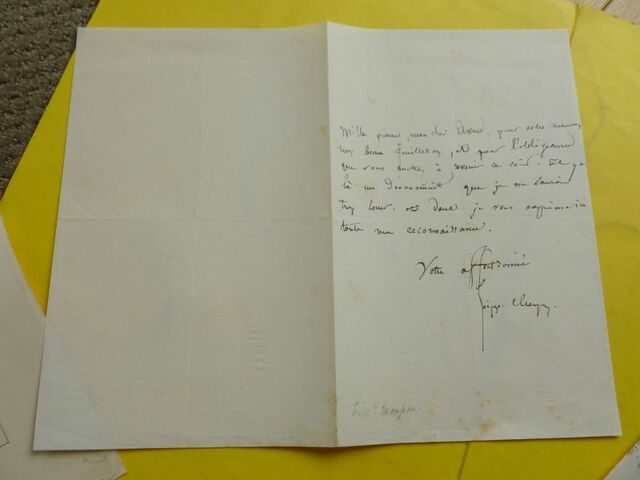 Mille grâces, mon cher Elwart, pour votre
trop beau feuilleton, et pour l'obligeance
que vous mettez à revenir ce soir. Il y a
là un dévouement que je ne saurais
trop louer, et dont je vous exprime ici
toute ma reconnaissance.
Votre affectionné
Hippe. Monpou.
Hippte Monpou.